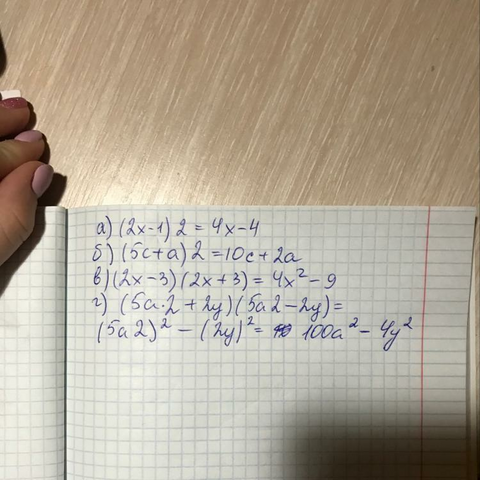 а) (2x-1) 2 = 4x-4
б) (5c+a) 2 =10c+2a
в) (2x-3) (2x+3) = 4x² - 9
г) (5a·2 + 2y) (5a2-2y)=
(5a2)² - (2y)² = 100a² - 4y²